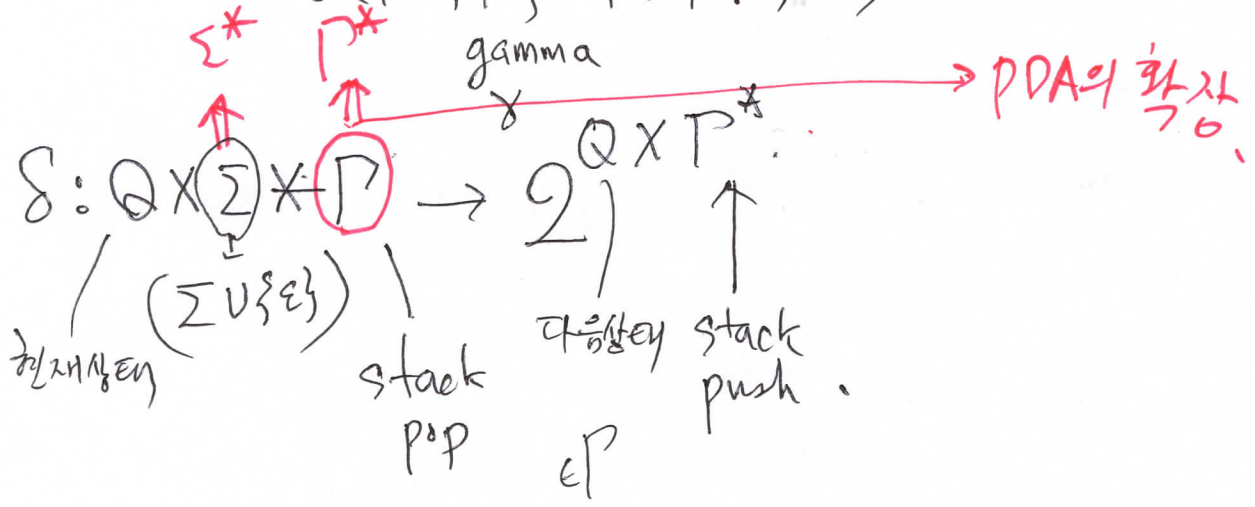 Σ* Γ*
gamma
γ
PDA의 확장
δ: Q × Σ × Γ → 2^{Q × Γ*}
(Σ∪{ε})
현재상태
stack
pop
다음상태
stack
push.
εΓ